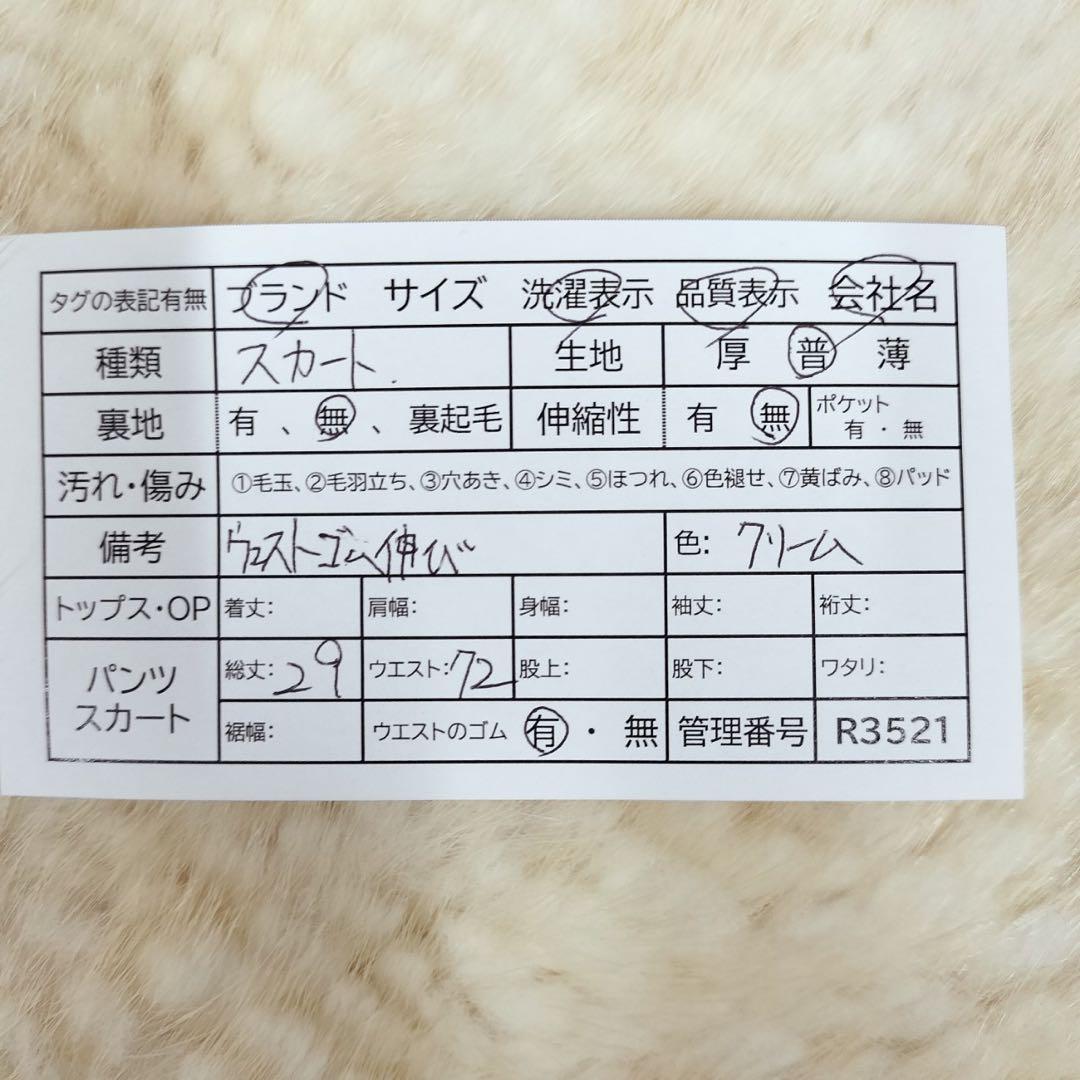 タグの表記有無 ブランド サイズ 洗濯表示 品質表示 会社名
種類 スカート 生地 厚 普 薄
裏地 有、無、裏起毛 伸縮性 有 無 ポケット 有・無
汚れ・傷み ①毛玉、②毛羽立ち、③穴あき、④シミ、⑤ほつれ、⑥色褪せ、⑦黄ばみ、⑧パッド
備考 ウエストゴム伸び 色: クリーム
トップス・OP 着丈: 肩幅: 身幅: 袖丈: 裄丈:
パンツ スカート 総丈: 29 ウエスト: 72 股上: 股下: ワタリ:
裾幅: ウエストのゴム 有・無 管理番号 R3521